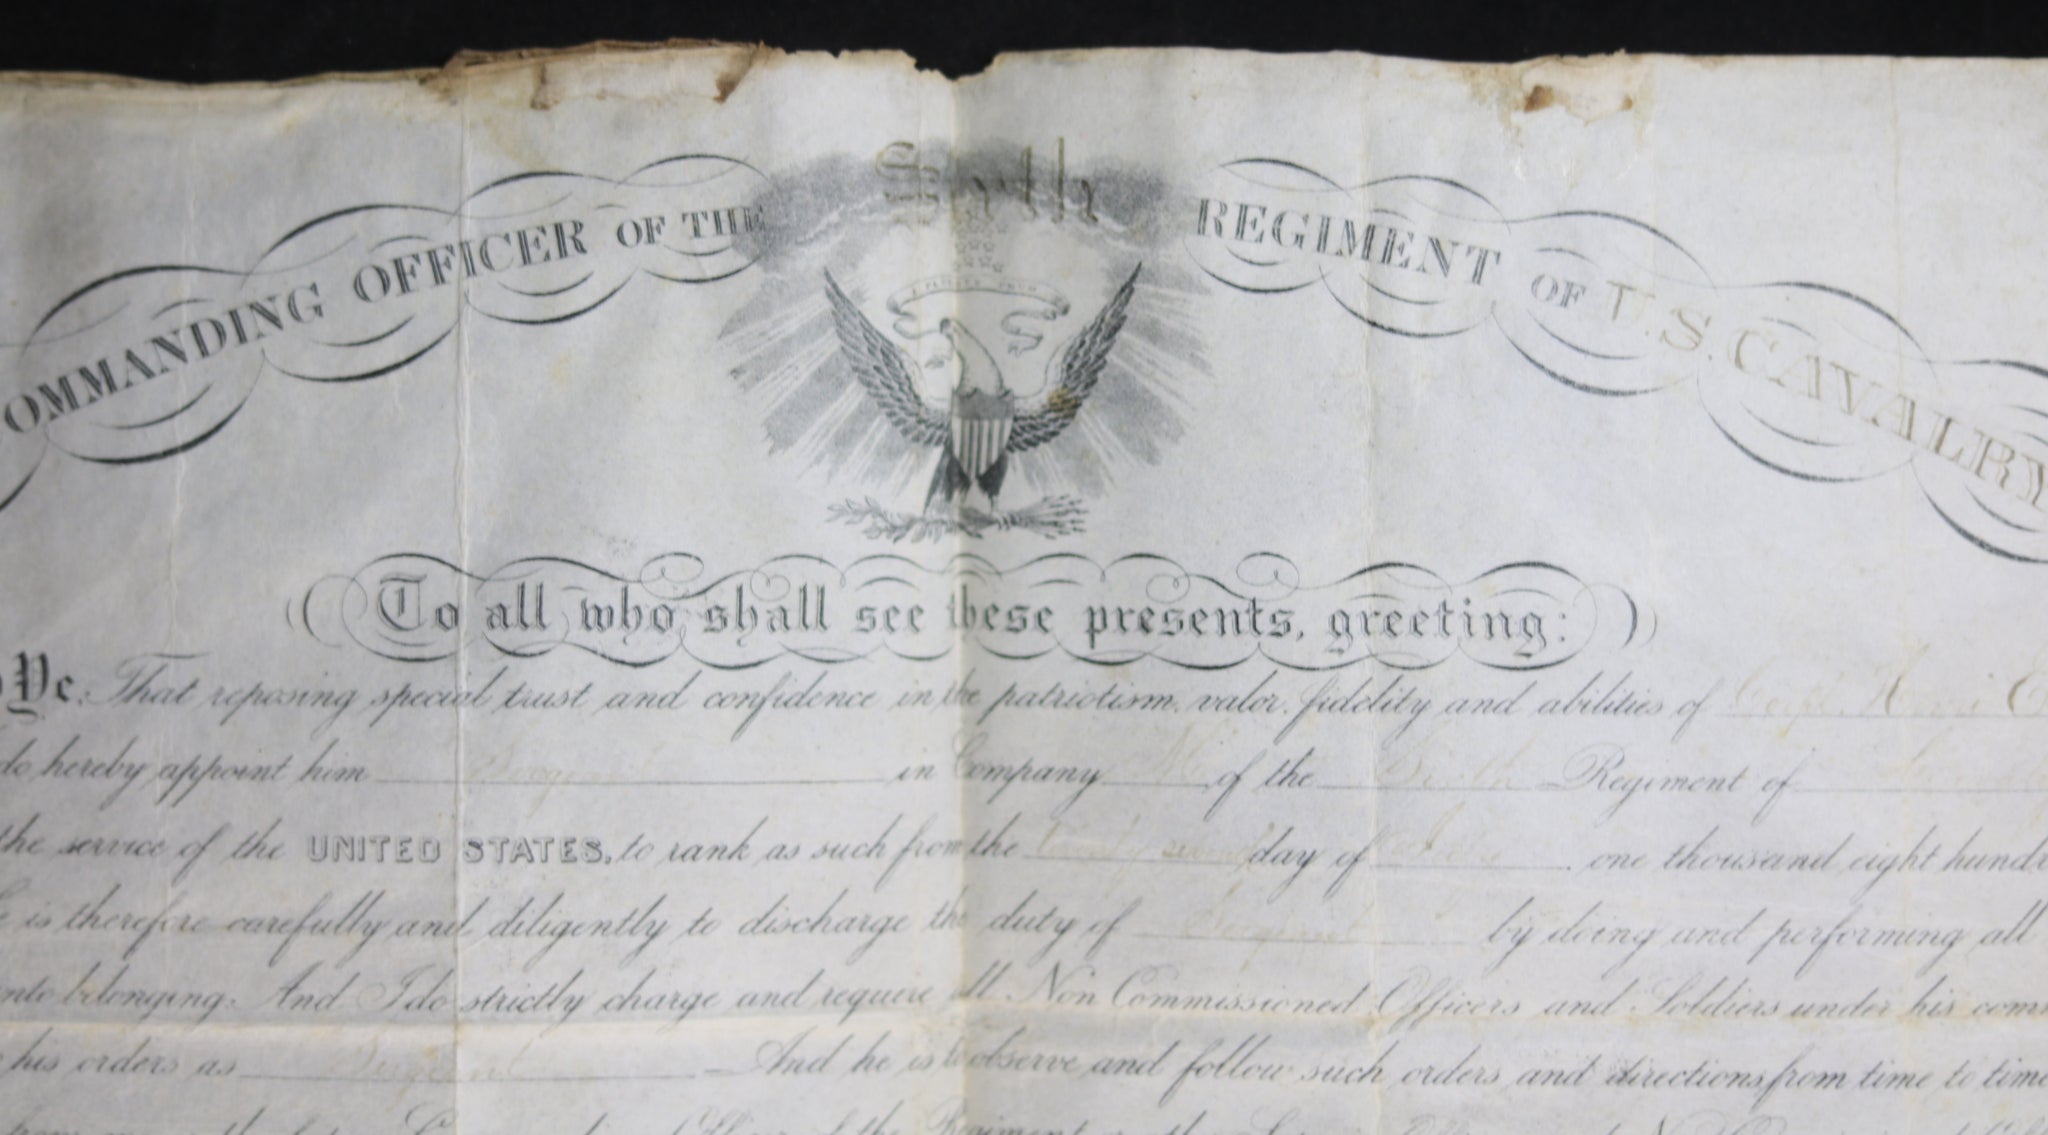 OMMANDING OFFICER OF THE Sixth REGIMENT OF U.S. CAVALRY
To all who shall see these presents, greeting:
Ye: That reposing special trust and confidence in the patriotism, valor, fidelity and abilities of Corpl.
do hereby appoint him Sergeant in Company M of the Sixth Regiment of
the service of the UNITED STATES, to rank as such from the twenty seventh day of one thousand eight hund
e is therefore carefully and diligently to discharge the duty of Sergeant by doing and performing all
nto belonging: And I do strictly charge and require all Non Commissioned Officers and Soldiers under his com
his orders as Sergeant And he is to observe and follow such orders and directions from time to time
Officer of the Regiment